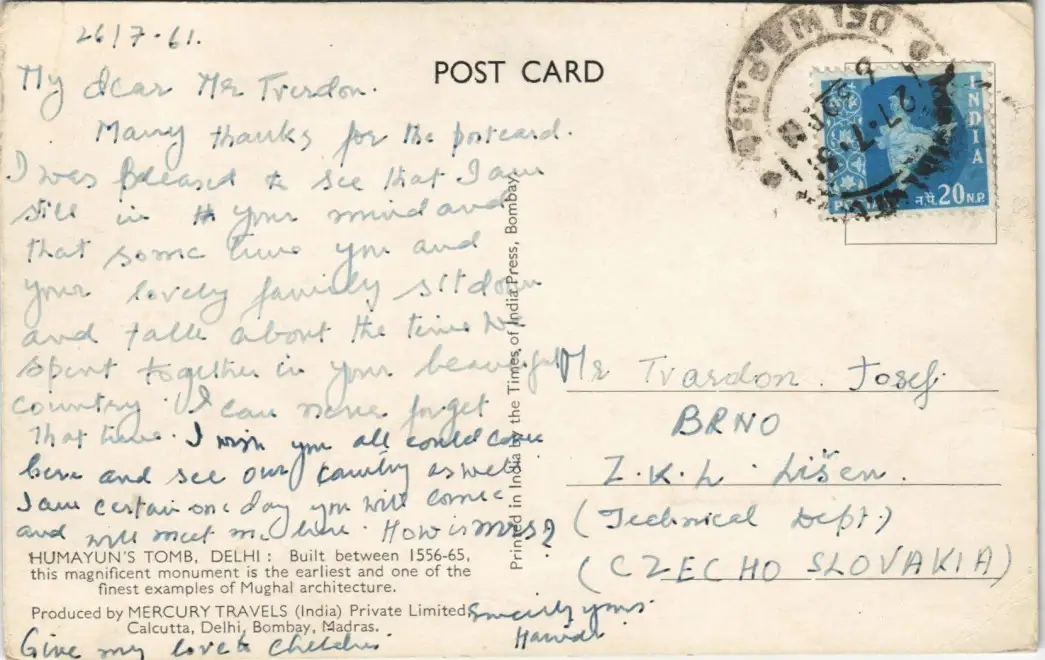 26/7-61.
POST CARD
My dear Mr Tvardon.
Many thanks for the postcard.
I was pleased to see that I am
still in your mind and
that some time you and
your lovely family sit down
and talk about the time we
spent together in your beautiful
country. I can never forget
that time. I wish you all could come
here and see our country as well
I am certain one day you will come
and will meet me here. How is
HUMAYUN'S TOMB, DELHI : Built between 1556-65,
this magnificent monument is the earliest and one of the
finest examples of Mughal architecture.
Produced by MERCURY TRAVELS (India) Private Limited,
Calcutta, Delhi, Bombay, Madras.
Sincerely yours
Give my love to children
Printed in India by the Times of India Press, Bombay
DELHI
27.7.61
INDIA
न.पै. 20 N.P.
Mr Tvardon Josef
BRNO
Z.K.L. Lišen.
(Technical Dept.)
(CZECHO SLOVAKIA)